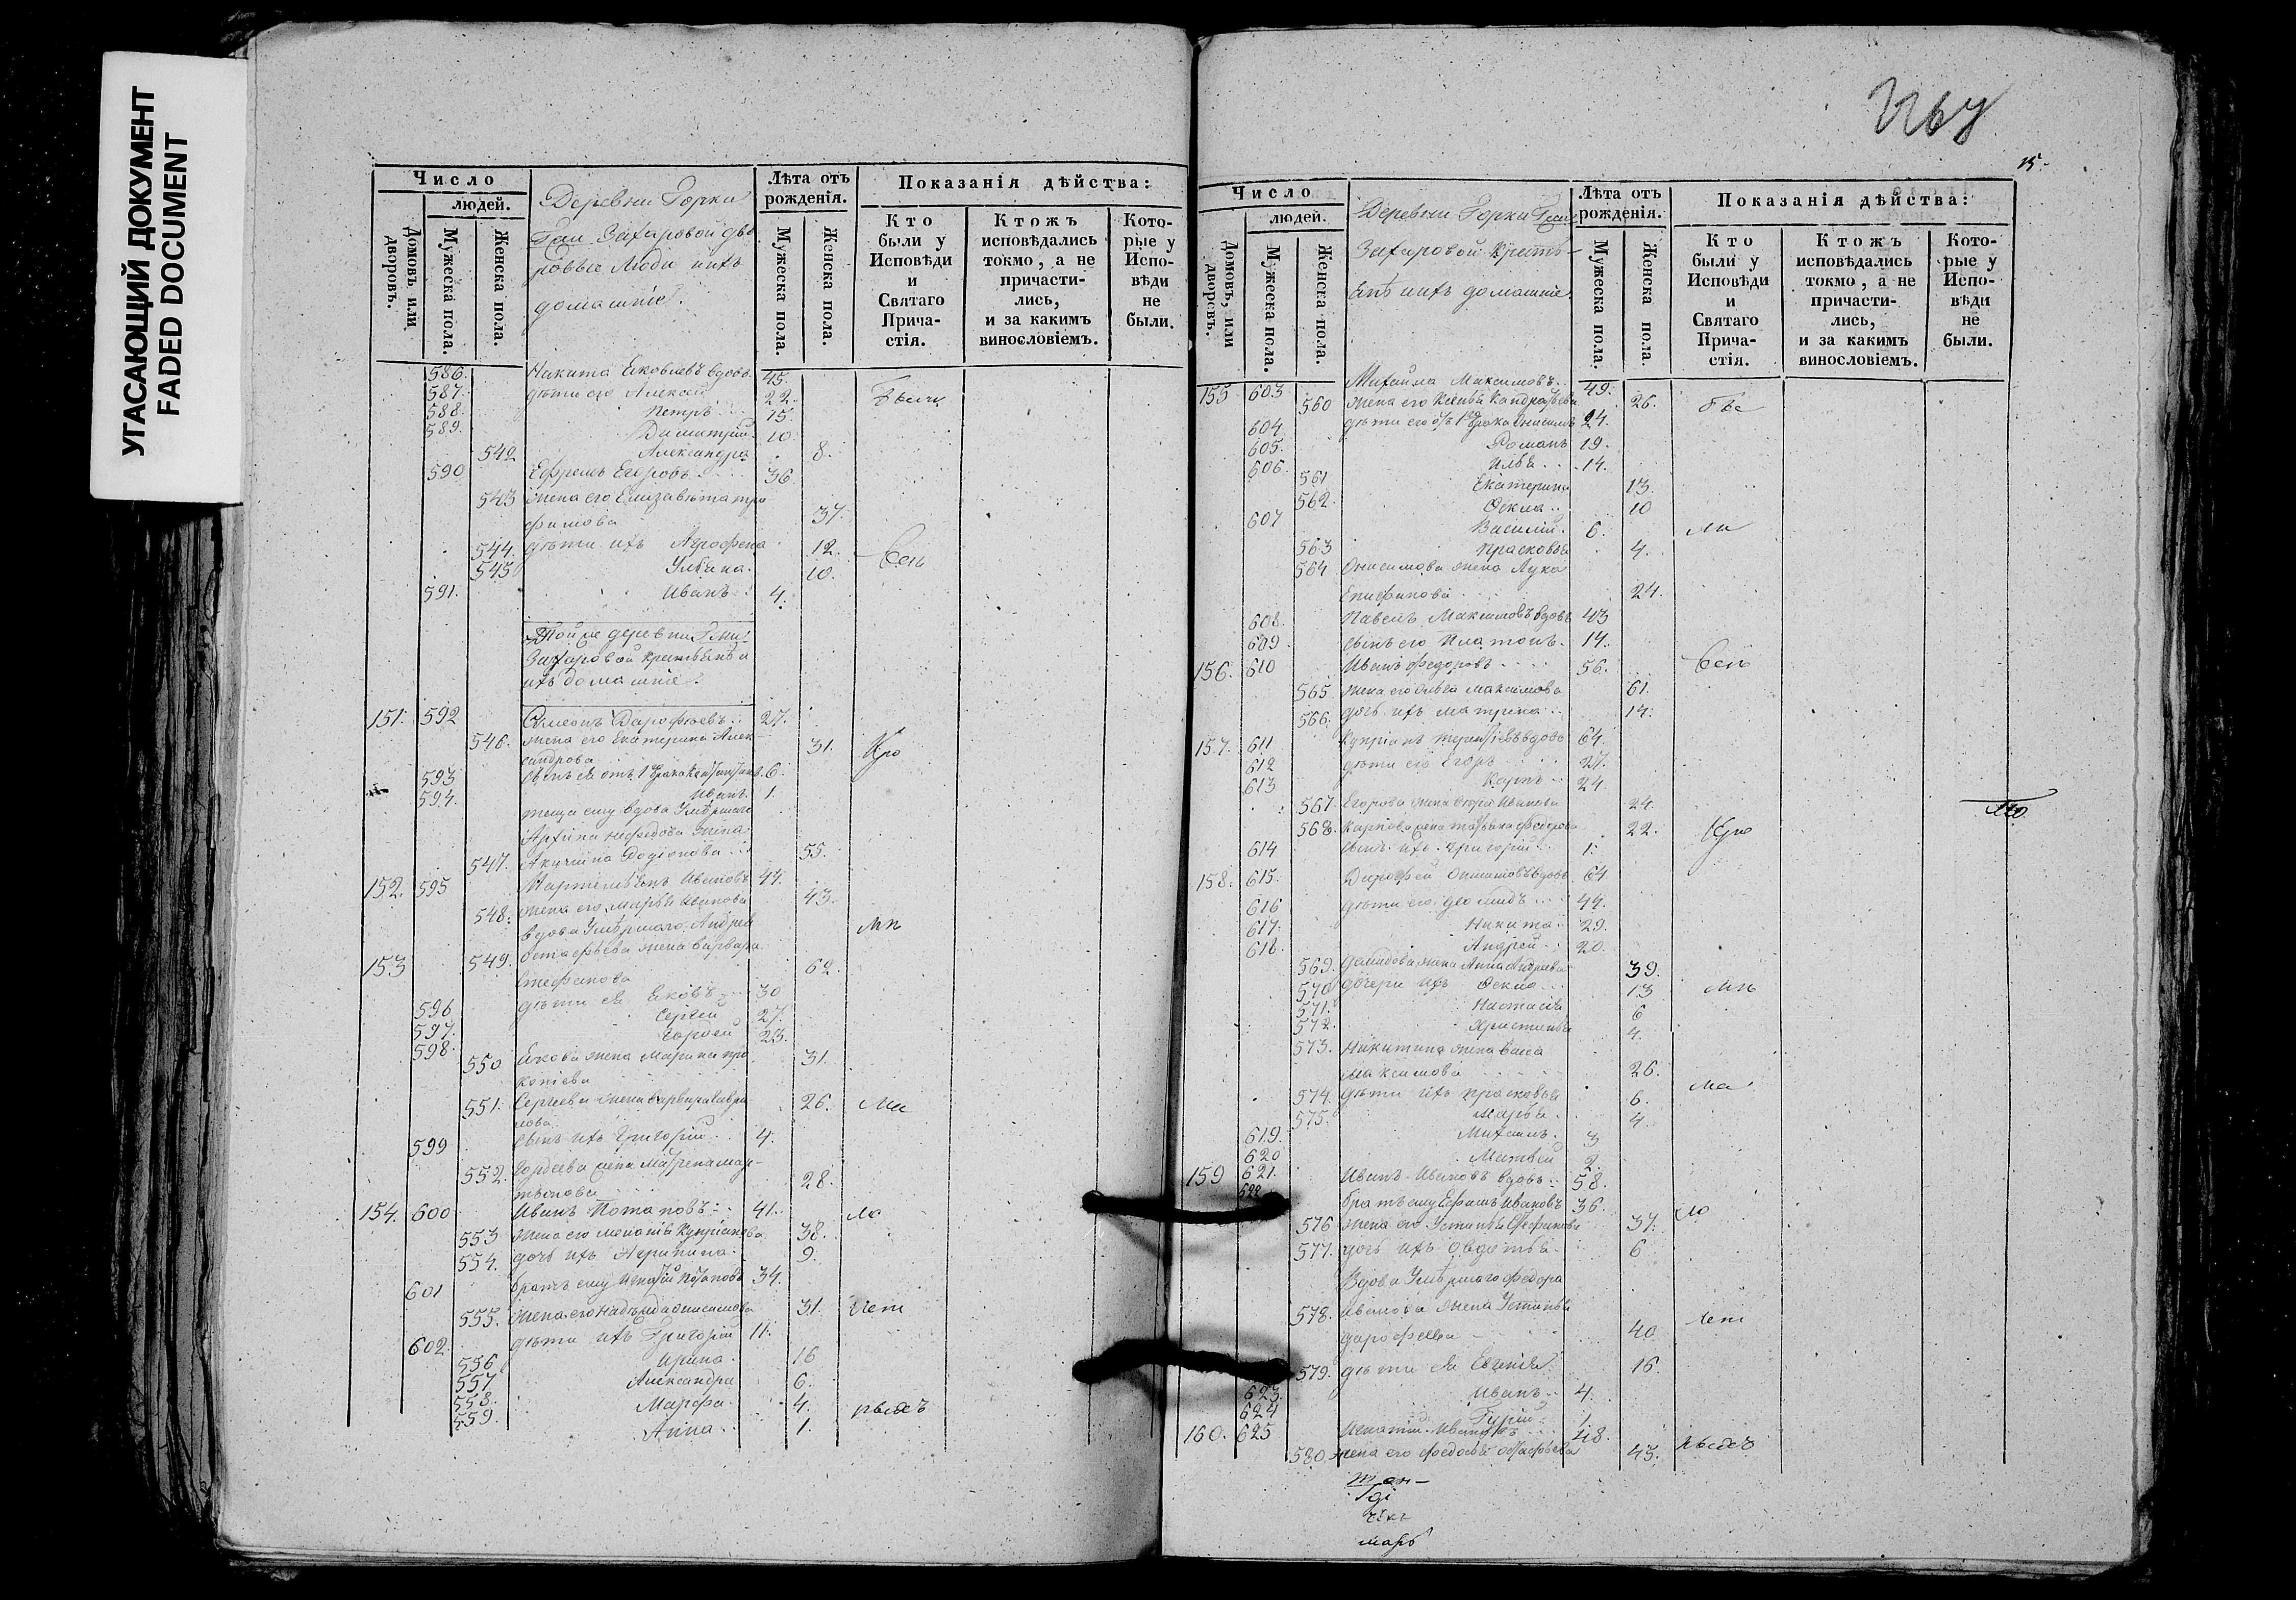 УГАСАЮЩИЙ ДОКУМЕНТ
FADED DOCUMENT
Число
людей.
Домовъ, или дворовъ.
Мужеска пола.
Женска пола.
Деревни Горки
Гжи Захаровой дво
ровые люди ихъ
домашніе.
Лѣта отъ рожденія.
Мужеска пола.
Женска пола.
Показанія дѣйства:
Кто были у Исповѣди и Святаго Прича-стія.
Ктожъ исповѣдались токмо, а не причасти-лись, и за какимъ винословіемъ.
Кото-рые у Испо-вѣди не были.
586. Никита Яковлевъ вдовъ 45.
587. дѣти его Алексей 22. были
588. Петръ 15.
589. Димитрій 10.
542 Александра 8.
590 Ефремъ Егоровъ 36
543 жена его Елизавета тро
фимова 37.
544. дѣти ихъ Агрофена 12. всѣ
545 Ульяна. 10.
591. Иванъ 4.
Той же деревни Гжи
Захаровой крестьянѣ и
ихъ домашніе
151. 592 Симеонъ Дарофеевъ 27.
546. жена его Екатерина Алек-
сандрова 31. Кро
593 6.
594. Иванъ 1.
теща ему вдова Умершаго
жена
547. Акулина Родіонова 55.
152. 595 Иванов 44.
548. жена его Марья Иванова 43.
вдова Умершаго Андрея
153 549. Остафьева жена Варвара
Стефанова 62.
596 дѣти ея Яковъ 30
597. Сергей 27.
598. Гордей 23.
550 Якова жена Марина про
копіева 31.
551. Сергеева жена Варвара Гаври
лова 26.
599 сынъ ихъ Григорій 4.
552. Гордеева жена Матрена мар-
тынова 28.
154. 600 Иванъ Потаповъ 41.
553 жена его Меланія Купріанова 38.
554. дочь ихъ Агрипина 9.
601 братъ ему Игнатій Потаповъ 34.
555. жена его Надежда Анисимова 31.
602 дѣти ихъ Григорій 11.
556 Ирина 16
557 Александра 6.
558. Марфа 4.
559. Анна 1.
15.
Число
людей.
Домовъ, или дворовъ.
Мужеска пола.
Женска пола.
Деревни Горки Гжи
Захаровой кресть-
янѣ ихъ домашніе
Лѣта отъ рожденія.
Мужеска пола.
Женска пола.
Показанія дѣйства:
Кто были у Исповѣди и Святаго Прича-стія.
Ктожъ исповѣдались токмо, а не причасти-лись, и за какимъ винословіемъ.
Кото-рые у Испо-вѣди не были.
155 603 Михайла Максимовъ 49.
560 жена его Кандратьева 26.
604. дѣти его Онисимъ 24.
605. Романъ 19.
606. Илья 14.
561 Екатерина 13.
562. Фекла 10
607 Василій 6.
563 Прасковья 4.
564 Онисимова жена
Епифанова 24.
608. Павелъ Максимовъ вдовъ 43
609 сынъ его Платонъ 14.
156. 610 Иванъ Федоровъ 56. всѣ
565 жена его Ольга Максимова 61.
566. дочь ихъ Матрена 14.
157. 611 Купріанъ вдовъ 64.
612 дѣти его Егоръ 27.
613 Карпъ 24.
567. Егорова жена Иванова 24.
568. Карпова жена Татьяна Федорова 22. Кро
614 сынъ ихъ Григорій 1.
158. 615. Дорофей вдовъ 64.
616 дѣти его 44.
617. Никита 29.
618. Андрей 20.
569. жена Анна Андреева 39.
570 дочери ихъ Фекла 13
571. Настасія 6
572. Христинья 4.
573. Никитина жена Васса
Максимова 26.
574. дѣти ихъ Прасковья 6.
575. Марья 4.
619. Михаилъ 3
620 Матвей 2.
159 621. Иванъ Ивановъ вдовъ 58.
622 братъ ему Ефимъ Ивановъ 36.
576 жена его Устинья 37.
577. дочь ихъ Овдотья 6
Вдова Умершаго Федора
578. Иванова жена Устинья
дарофеева 40
579. дѣти ея Евгенія 16.
623. Иванъ 4.
624 Гурій 1
160. 625 Игнатій Ивановъ 48.
580. жена его Федосья Остафьева 45.